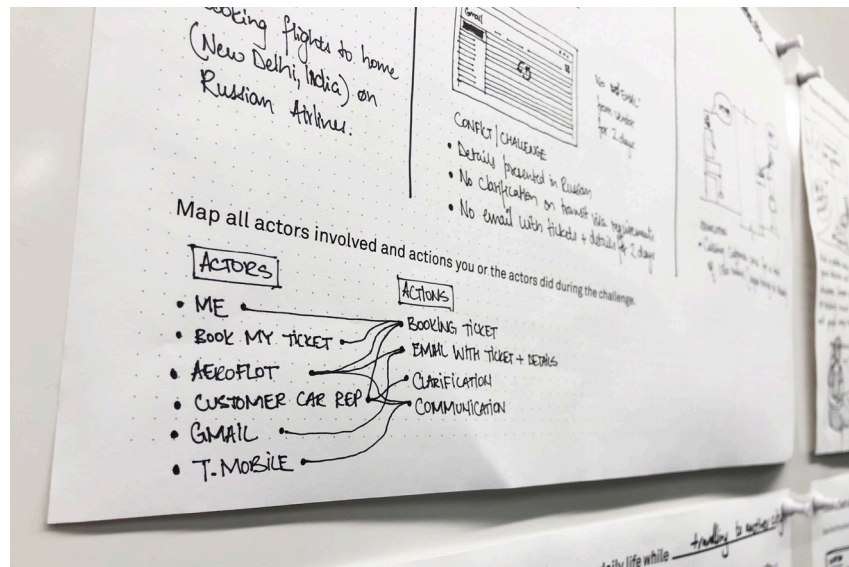 Booking flights to home
(New Delhi, India) on
Russian Airlines.
Gmail
No
from
for 2 days
CONFLICT / CHALLENGE
• Details presented in Russian
• No clarification on transit visa requirements
• No email with tickets + details for 2 days
Map all actors involved and actions you or the actors did during the challenge.
ACTORS
• ME
• BOOK MY TICKET
• AEROFLOT
• CUSTOMER CAR REP
• GMAIL
• T-MOBILE
ACTIONS
BOOKING TICKET
EMAIL WITH TICKET + DETAILS
CLARIFICATION
COMMUNICATION
daily life while travelling to another city